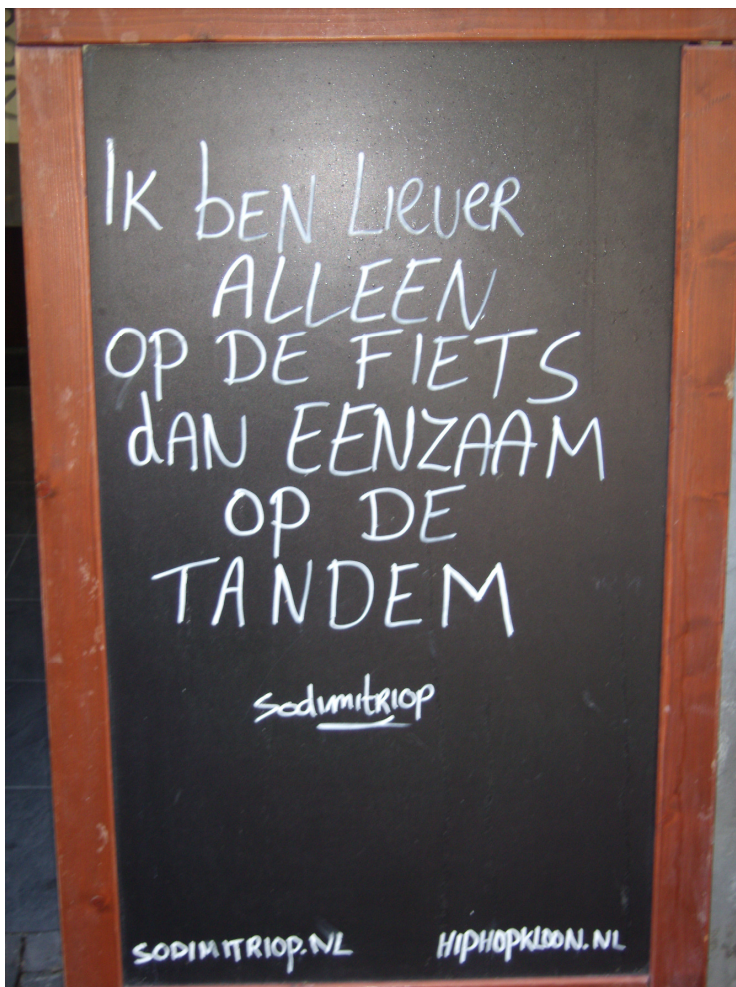 Ik bEN LieveR
ALLEEN
OP DE FIETS
dAN EENZAAM
OP DE
TANDEM
SodimitRiop
SODIMITRIOP.NL HIPHOPKLOON.NL